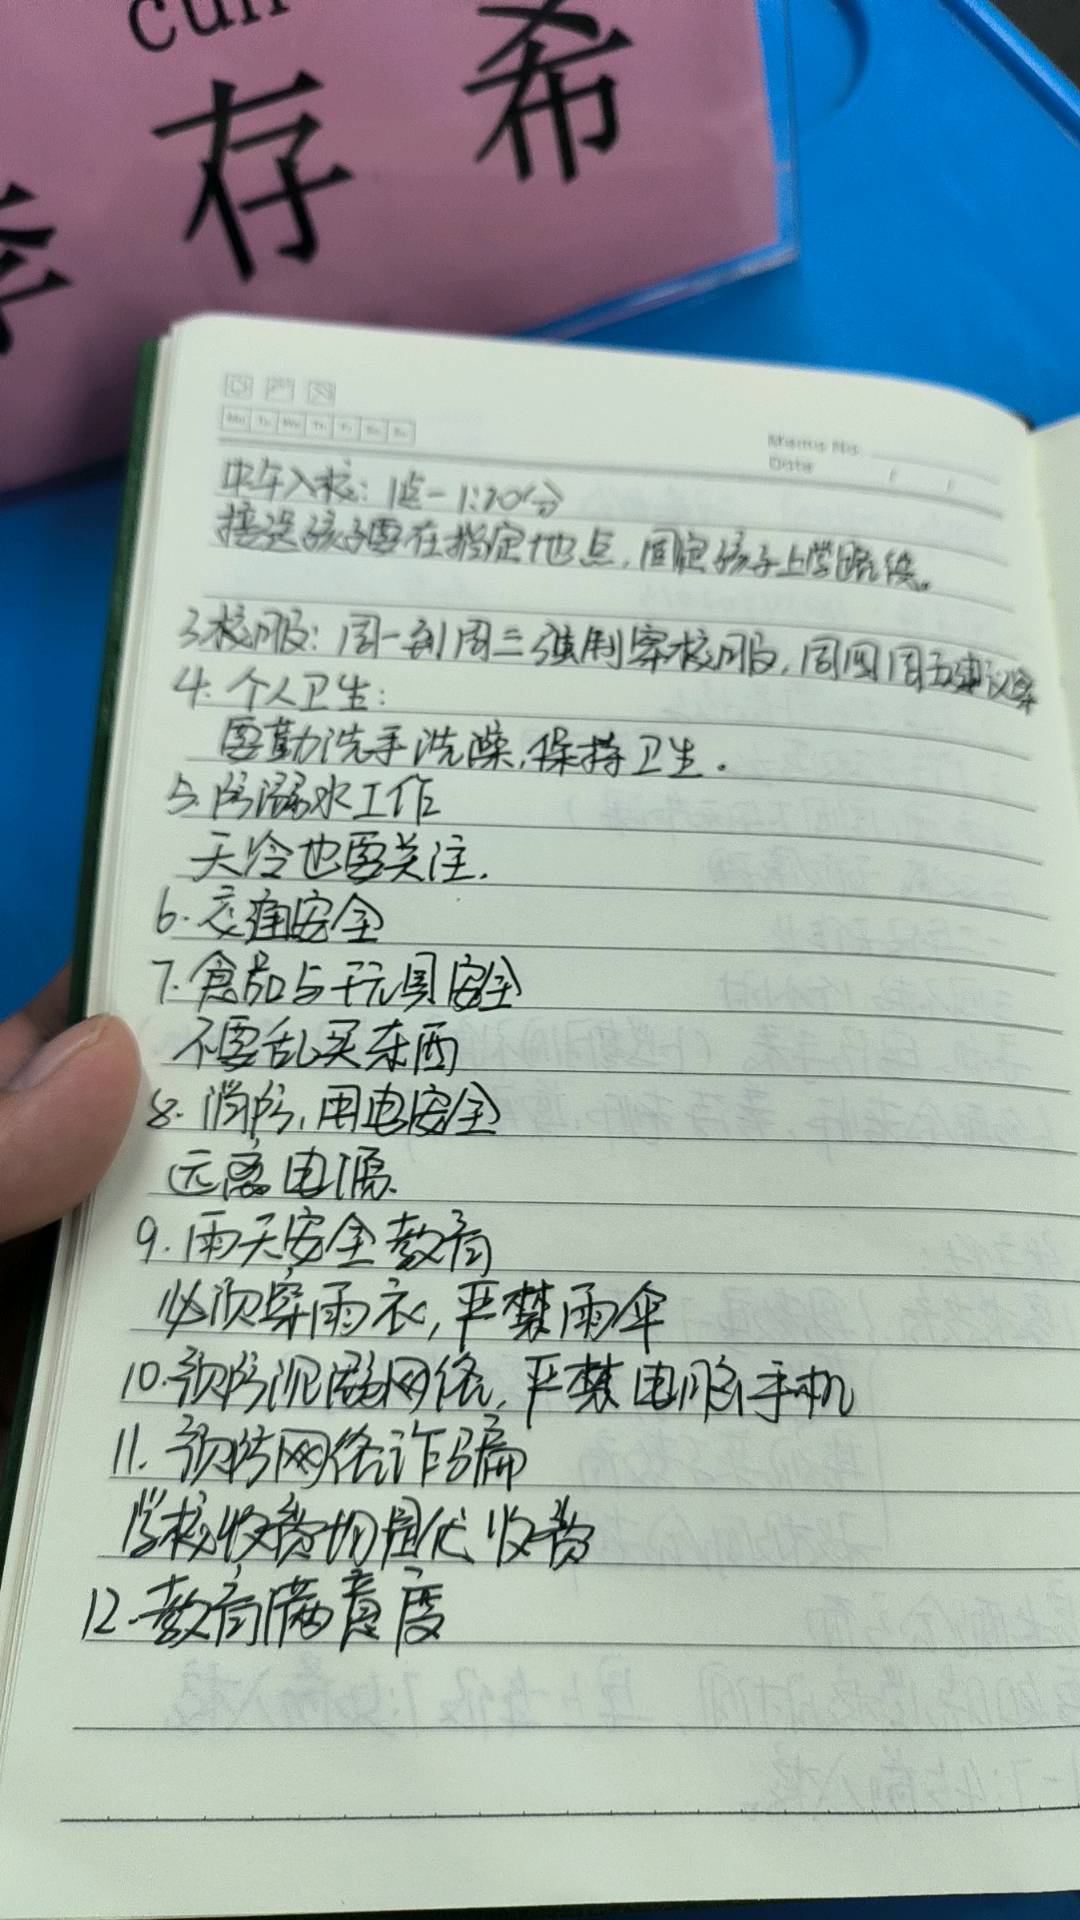 cun
存 希
Memo No.
Date / /
Mo Tu We Th Fr Sa Su
中午入校：1点-1:20分
接送孩子要在指定地点，固定孩子上学路线。
3.校服：周一到周三强制穿校服，周四周五建议穿
4.个人卫生：
要勤洗手洗澡，保持卫生.
5.防溺水工作
天冷也要关注.
6.交通安全
7.食品与玩具安全
不要乱买东西
8.消防，用电安全
远离电源.
9.雨天安全教育
必须穿雨衣，严禁雨伞
10.预防沉溺网络，严禁电脑手机
11.预防网络诈骗
学校收费切固代收费
12.教育满意度